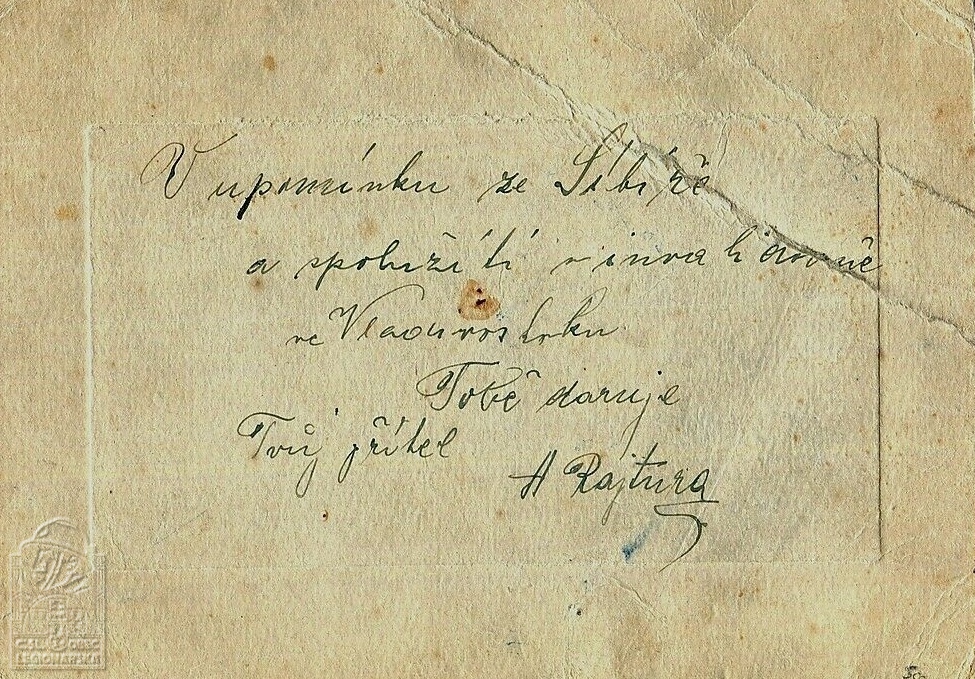 V upomínku ze Sibíře
a spolužití v invalidovně
ve Vladivostoku
Tobě daruje
Tvůj přítel
A Rajtura
ČSL OBEC
LEGIONÁŘSKÁ